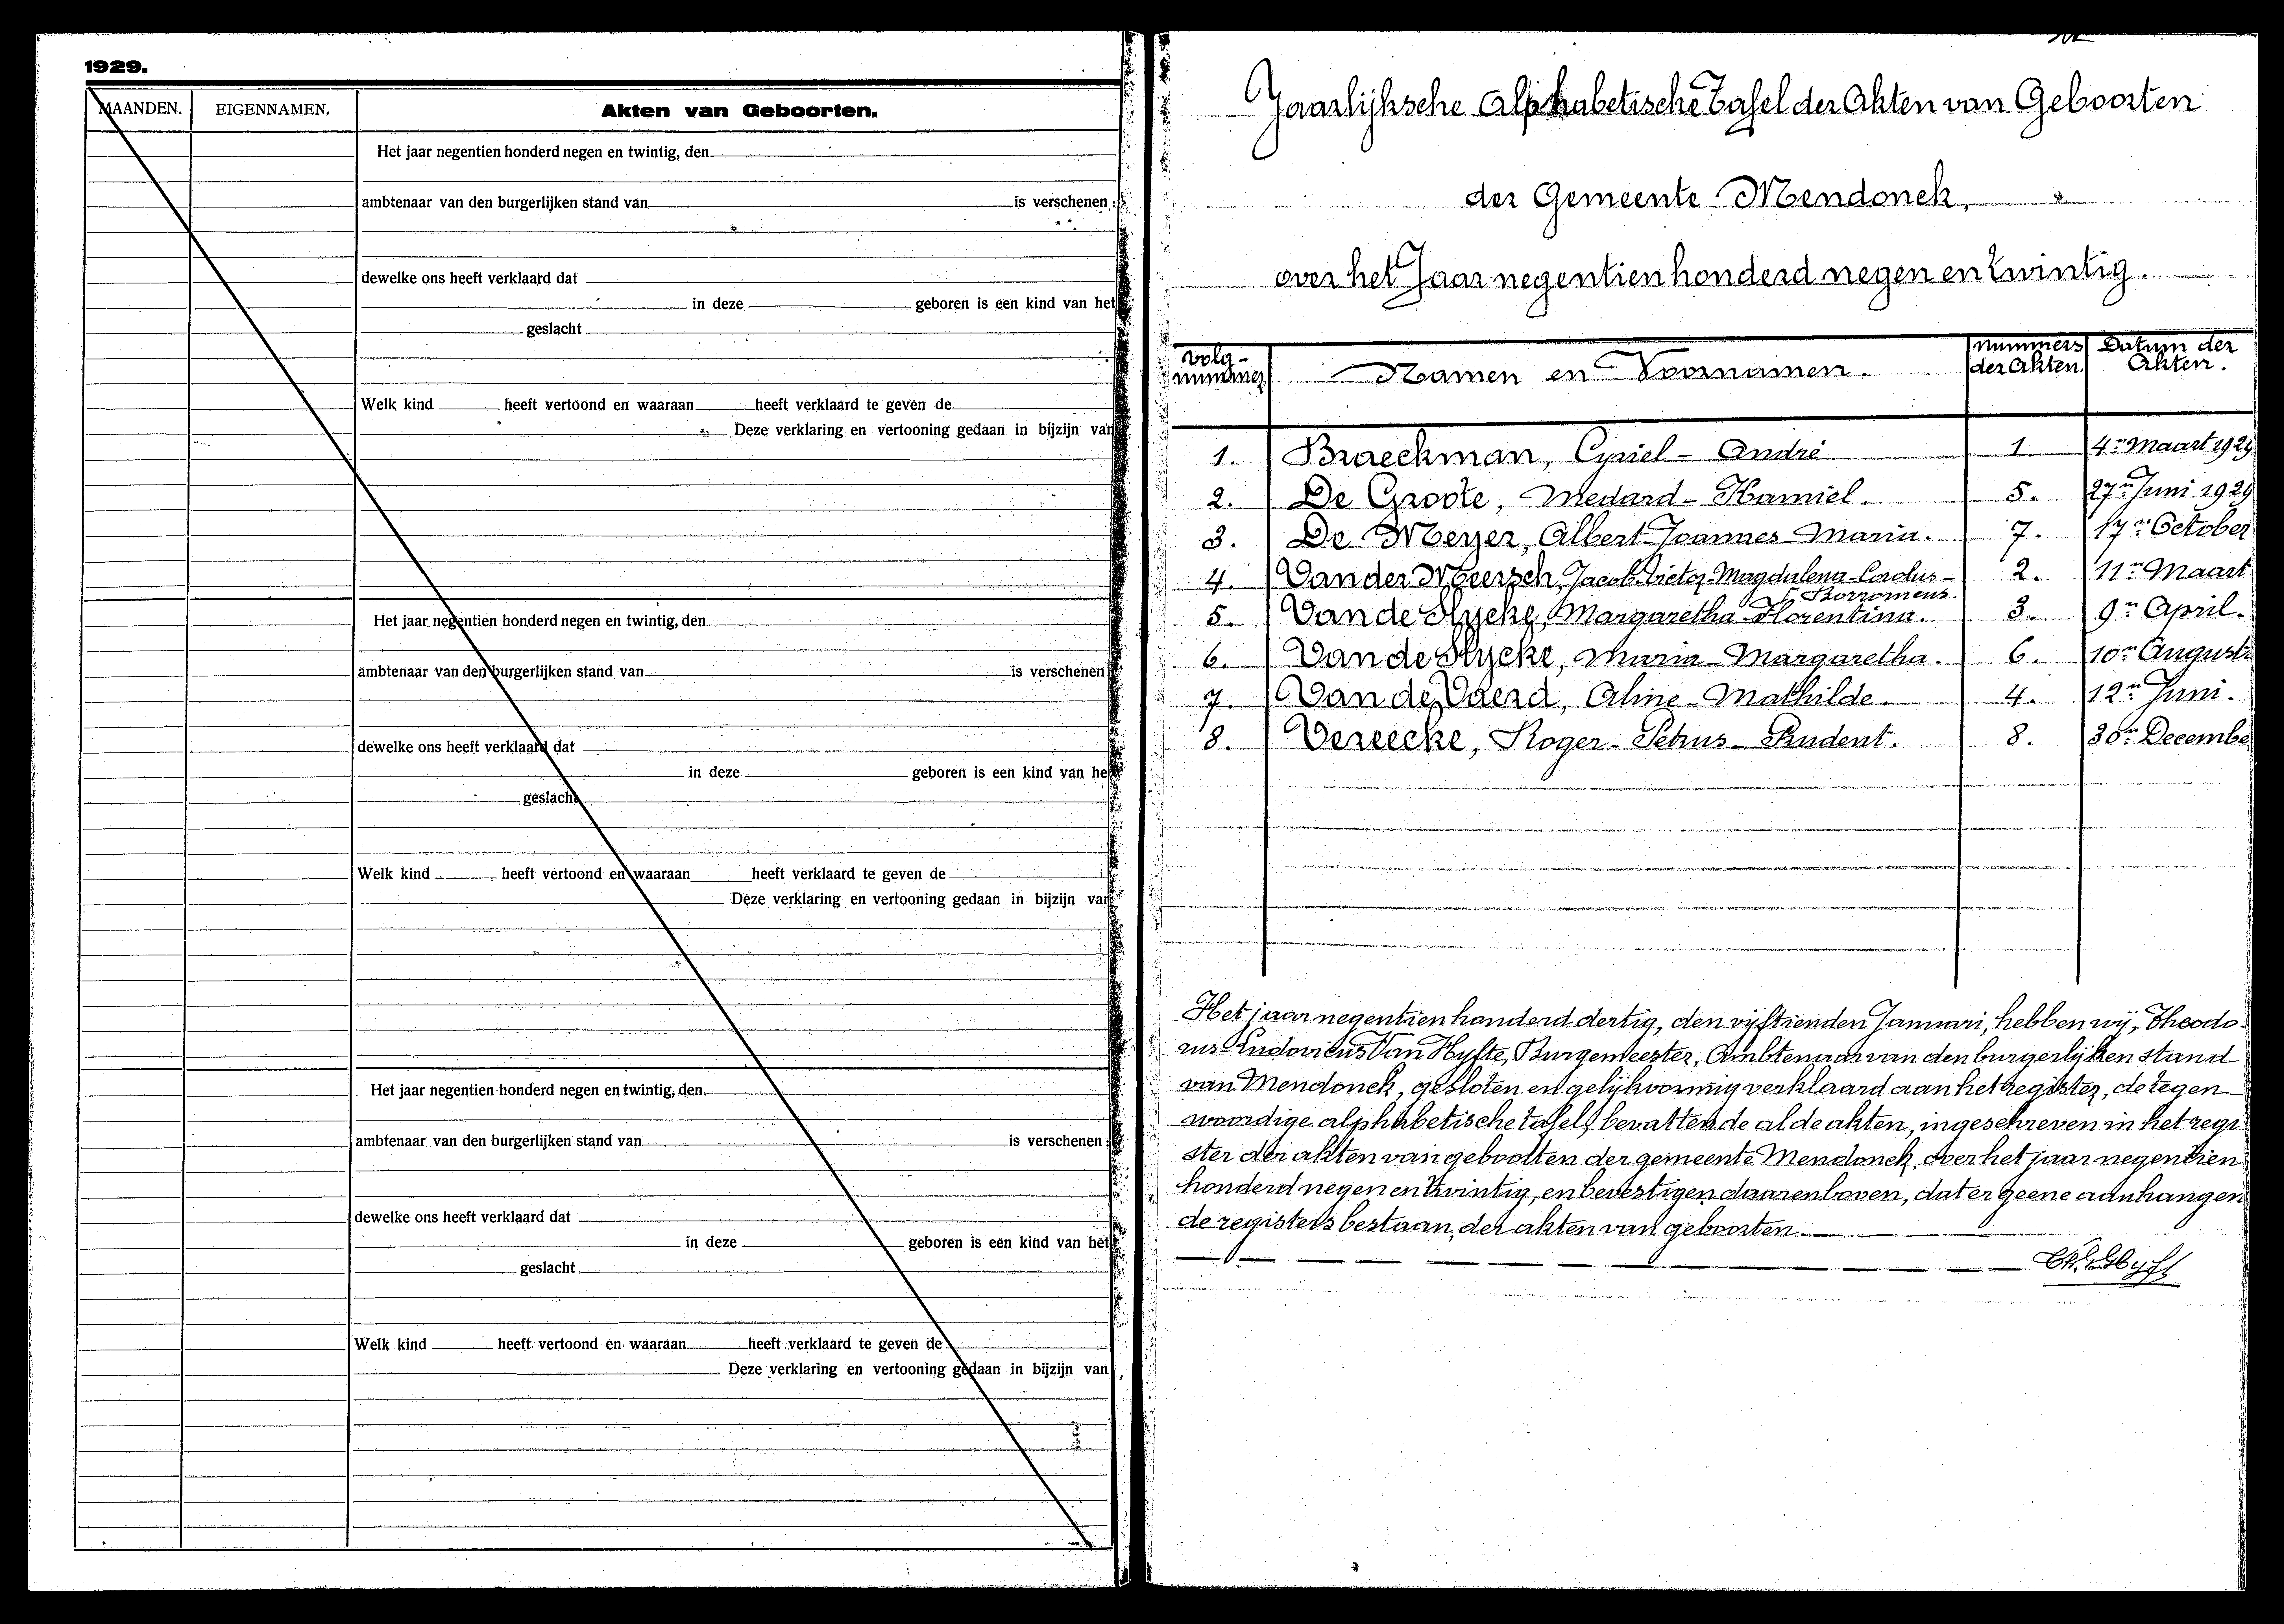 1929.
MAANDEN. EIGENNAMEN. Akten van Geboorten.
Het jaar negentien honderd negen en twintig, den
ambtenaar van den burgerlijken stand van is verschenen :
dewelke ons heeft verklaard dat
in deze geboren is een kind van het
geslacht
Welk kind heeft vertoond en waaraan heeft verklaard te geven de
Deze verklaring en vertooning gedaan in bijzijn van
Het jaar negentien honderd negen en twintig, den
ambtenaar van den burgerlijken stand van is verschenen
dewelke ons heeft verklaard dat
in deze geboren is een kind van het
geslacht
Welk kind heeft vertoond en waaraan heeft verklaard te geven de
Deze verklaring en vertooning gedaan in bijzijn van
Het jaar negentien honderd negen en twintig, den
ambtenaar van den burgerlijken stand van is verschenen :
dewelke ons heeft verklaard dat
in deze geboren is een kind van het
geslacht
Welk kind heeft vertoond en waaraan heeft verklaard te geven de
Deze verklaring en vertooning gedaan in bijzijn van
Jaarlijksche Alphabetische Tafel der Akten van Geboorten
der Gemeente Mendonck,
over het Jaar negentien honderd negen en twintig.
Volg- Nummers Datum der
nummers Namen en Voornamen. der Akten Akten.
1. Braeckman, Cyriel - André 1. 4n Maart 1929
2. De Groote, Medard - Kamiel. 5. 27n Juni 1929
3. De Meyer, Albert Joannes Maria. 7. 17n October
4. Van der Meersch, Jacob-Victor-Magdalena-Carolus- 2. 11n Maart
Borromeus.
5. Van de Slycke, Margaretha Florentina. 3. 9n April.
6. Van de Slycke, Maria - Margaretha. 6. 10n Augusti
7. Van de Vaerd, Aline - Mathilde. 4. 12n Juni.
8. Vereecke, Roger - Petrus - Prudent. 8. 30n Decembe
Het jaar negentien honderd dertig, den vijftienden Januari, hebben wij, Theodo-
rus Ludovicus Van Hyfte, Burgemeester, Ambtenaar van den burgerlijken stand
van Mendonck, gesloten en gelijkvormig verklaard aan het register, de tegen-
woordige alphabetische tafel, bevattende al de akten, ingeschreven in het regi-
ster der akten van geboorten der gemeente Mendonck, over het jaar negentien
honderd negen en twintig, en bevestigen daarenboven, dat er geene aanhangen-
de registers bestaan, der akten van geboorten.